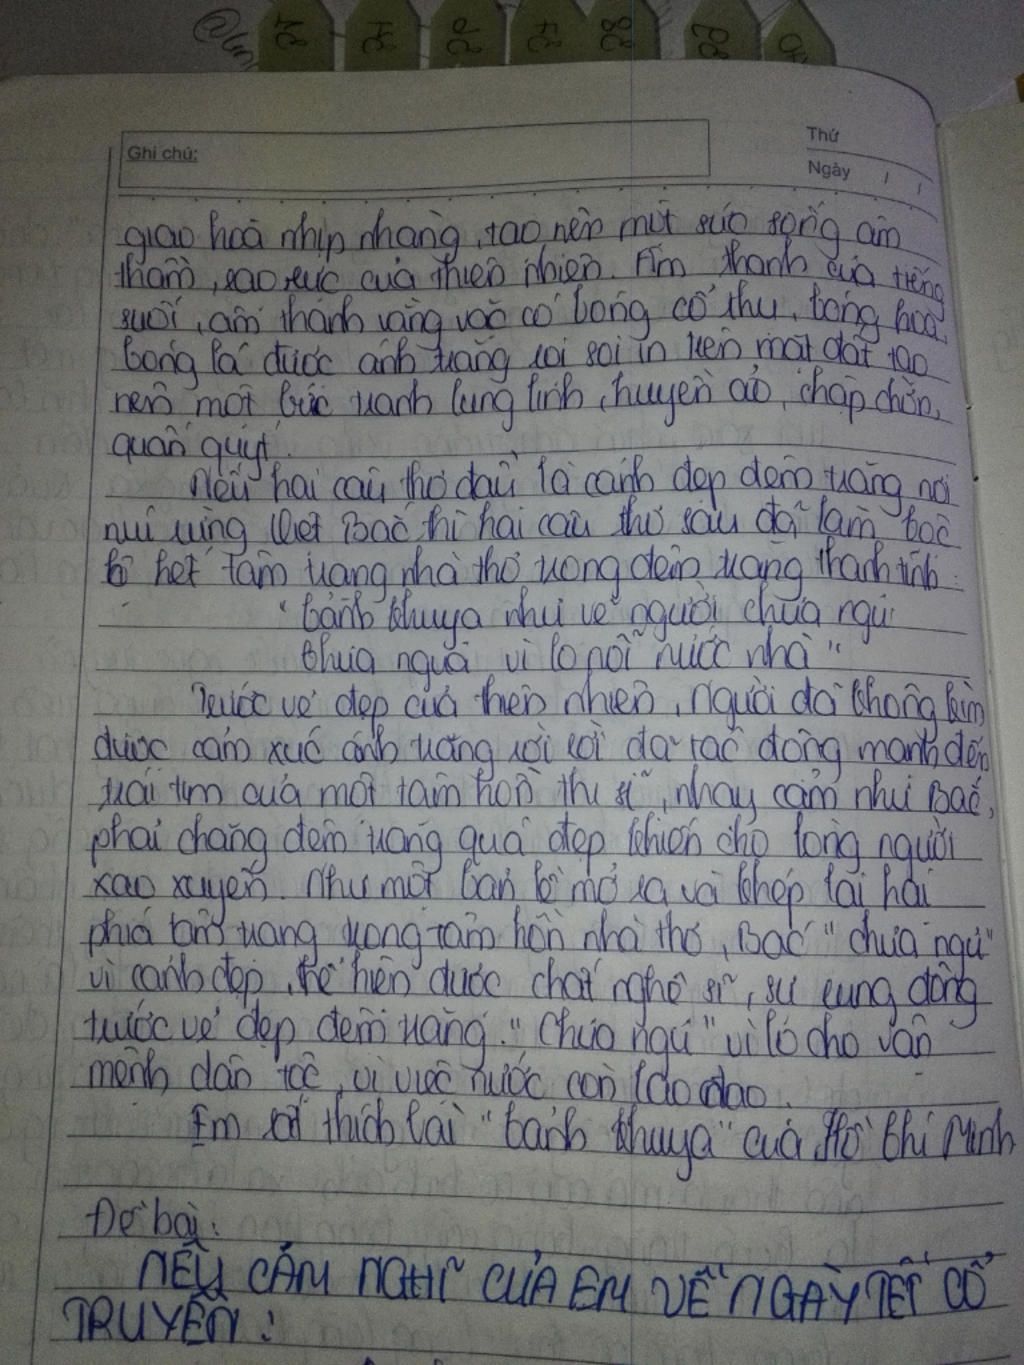 Ghi chú:
Thứ
Ngày / /
giao hoà nhịp nhàng, tạo nên một sức sống âm
thầm, rạo rực của thiên nhiên. Âm thanh của tiếng
suối, âm thanh vang vào có bóng cổ thụ, bóng hoa,
bóng lá được ánh trăng rọi soi in trên mặt đất tạo
nên một bức tranh lung linh, huyền ảo, chập chờn,
quấn quýt.
Nếu hai câu thơ đầu là cảnh đẹp đêm trăng nơi
núi rừng Việt Bắc thì hai câu thơ sau đã làm bộc
lộ hết tâm trạng nhà thơ trong đêm trăng thanh tĩnh:
"Cảnh khuya như vẽ người chưa ngủ
Chưa ngủ vì lo nỗi nước nhà"
Trước vẻ đẹp của thiên nhiên, Người đã không kìm
được cảm xúc ánh trăng rời rời đã tác động mạnh đến
trái tim của một tâm hồn thi sĩ, nhạy cảm như Bác,
phải chăng đêm trăng quá đẹp khiến cho lòng người
xao xuyến. Như một bản lề mở ra và khép lại hai
phía tâm trạng trong tâm hồn nhà thơ, Bác "chưa ngủ"
vì cảnh đẹp, thể hiện được chất nghệ sĩ, sự rung động
trước vẻ đẹp đêm trăng. "Chưa ngủ" vì lo cho vận
mệnh dân tộc, vì việc nước còn lao đao.
Em rất thích bài "cảnh khuya" của Hồ Chí Minh
Đề bài:
NÊU CẢM NGHĨ CỦA EM VỀ NGÀY TẾT CỔ
TRUYỀN!